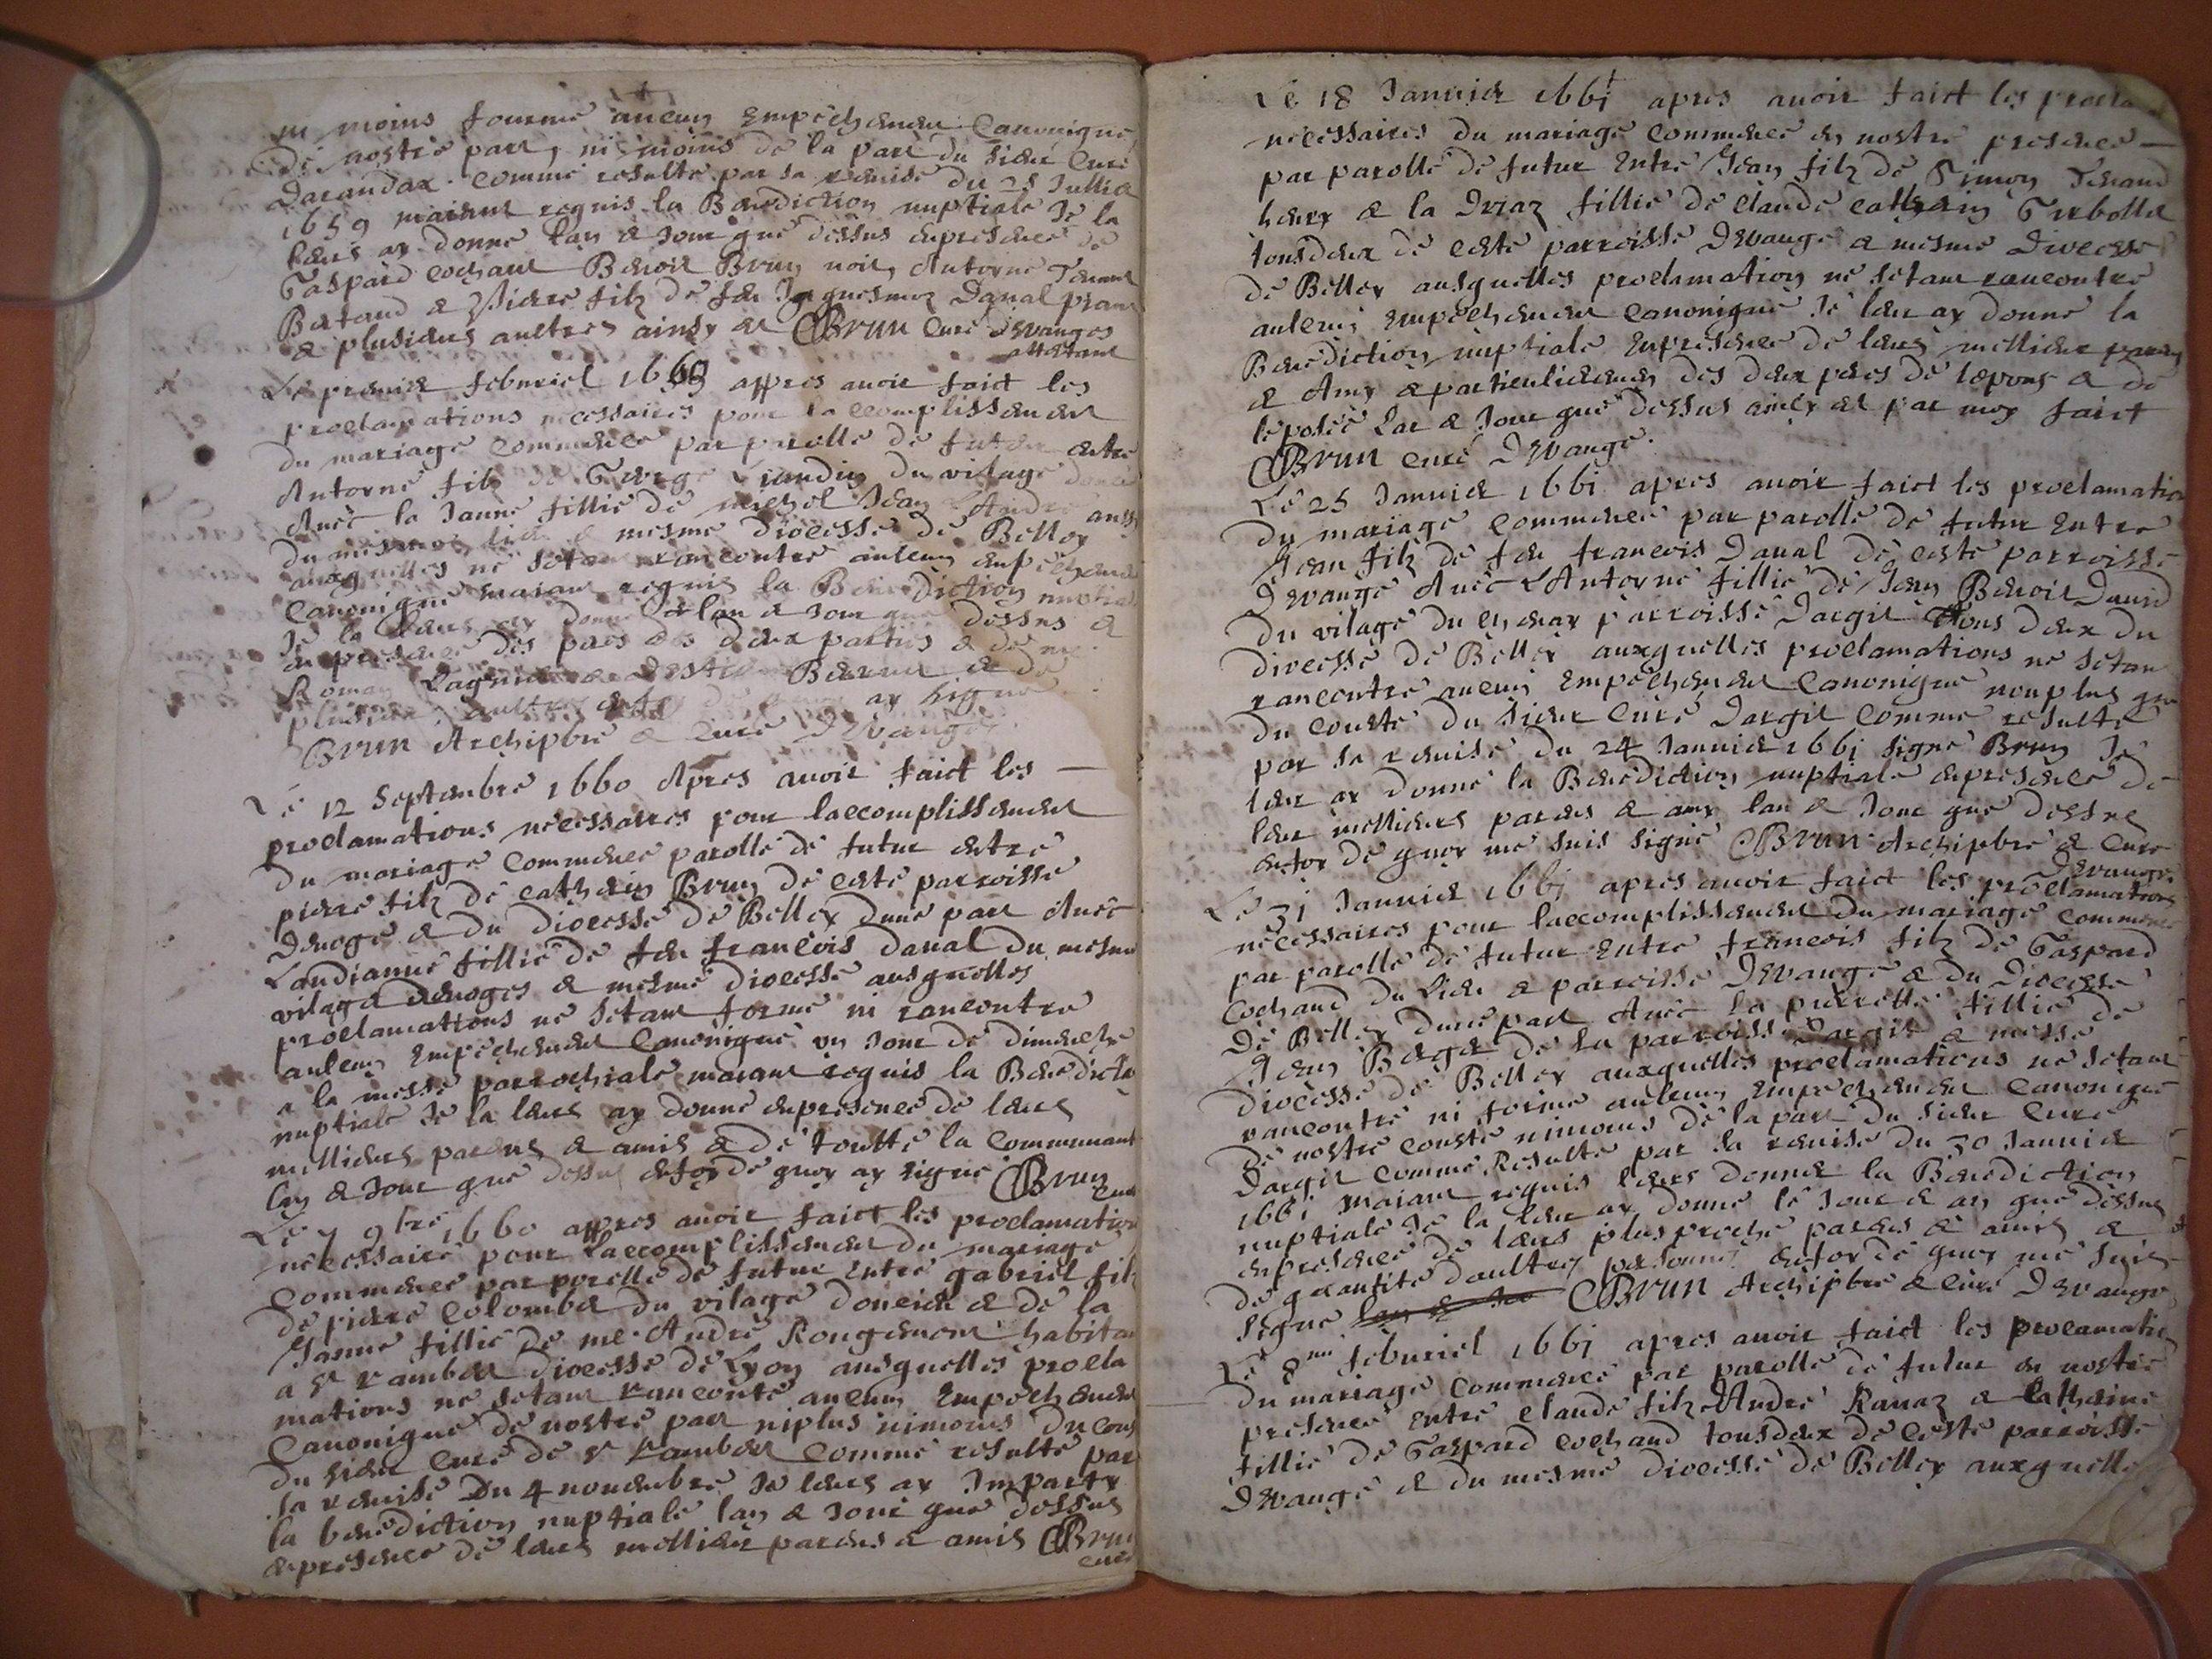 ni moins fourmé aucun Empechement Canonique
de nostre part, ni moins de la part du sieur Curé
Darandax comme resulte par sa remise du 25 Jullie
1659 maiant requis la Benediction nuptiale Je la
leurs ay donné lan & Jour que dessus enpresence de
Gaspard cochant Benoit Brun noir, Antoyne
Bertand & Pierre filz de feu Jaquesmoz Daval
& plusieurs aultres ainsy est CBrun Curé devanges
attestant
Le premier febvriel 1660 appres avoir faict les
proclamations necessaires pour laccomplissement
du mariage Commencé par parolle de futur entre
Antoyne filz de George Liandin du village
Avec la Janne fillie de michel Jean
du mesme lieu & mesme diocesse de Belley
auxquelles ne setant rancontré aulcun empechement
Canonique maiant requis la Benediction nuptiale
Je la leurs ay donné lan & Jour que dessus &
en presence des peres des deux parties & de me
Roman & de
plusieurs aultres ay signé
Brun Archipbre & Curé Devanges
Le 12 Septembre 1660 Apres avoir faict les
proclamations necessaires pour laccomplissement
du mariage Commencé parolle de futur entre
pierre filz de catherin Brun de ceste parroisse
Devoge & du Diocesse de Belley dune part Avec
Landianne fillie de feu françois daval du mesme
vilage devoges & mesme diocesse ausquelles
proclamations ne setant formé ni rancontré
aulcun Empechement Canonique un Jour de dimenche
a la messe parrochiale maiant requis la Benedictio
nuptiale Je la leurs ay donné enpresence de leurs
mellieurs parens & amis & de toutte la Communauté
lan & Jour que dessus enfoy de quoy ay signé CBrun
Curé
Le 7 9bre 1660 appres avoir faict les proclamation
necessaire pour Laccomplissement du mariage
Commencé par parolle de futur Entre gabriel filz
de pierre Colombet du vilage doncieu & de la
Janne fillie de me André Rougemont habitan
a St rambert diocesse de Lyon ausquelles procla
mations ne setant rancontré aucun Empechement
Canonique de nostre part niplus nimoins du cousté
du sieur Curé de St rambert Comme resulte par
sa remise Du 4 novembre Je leurs ay Imparty
la benediction nuptiale lan & Jour que dessus
enpresence de leurs mellieur parens & amis CBrun
curé
Le 18 Janvier 1661 apres avoir faict les procla
necessaires du mariage Commencé en nostre presence
par parolle de futur Entre Jean filz de Simon
& la fillie de claude
tousdeux de ceste parroisse Devange & mesme Diocesse
de Belley ausquelles proclamation ne setant rancontré
aulcun Empechement Canonique Je leur ay donné la
Benediction nuptiale Enpresence de leurs mellieur paren
& Amy & particulierement des deux peres de lepoux & de
leposée Lan & Jour que dessus ainsy est par moy faict
CBrun Curé Devange.
Le 25 Janvier 1661 apres avoir faict les proclamation
du mariage Commencé par parolle de futur Entre
Jean filz de feu francois Daval de ceste parroisse
Devange Avec LAntoyne fillie de Jean Benoit David
du vilage du parroisse Dargit Tous deux du
diocesse de Belley auxquelles proclamations ne setan
rancontré aucun Empechement Canonique nonplus que
du Cousté du sieur Curé Dargit Comme resulte
par sa remise du 24 Janvier 1661 signé Brun Je
leur ay donné la Benediction nuptiale enpresence de
leur mellieurs parens & amy lan & Jour que dessus
enfoy de quoy me suis signé CBrun Archipbre & Curé
Devange
Le 31 Janvier 1661 apres avoir faict les proclamations
necessaires pour laccomplissement du mariage Commencé
par parolle de futur Entre francois filz de Gaspard
Cochand du Lieu & parroisse Devange & du Diocesse
De Belley dune part Avec la pierrette fillie de
Jean de la parroisse dargit & mesme
diocesse de Belley auxquelles proclamations ne setant
rancontré ni formé aulcun Empechement Canonique
de nostre cousté nimoins de la part du sieur Curé
dargit Comme Resulte par sa remise du 30 Janvier
1661 maiant requis leurs donner la Benediction
nuptiale Je la leur ay donné le Jour & an que dessus
enpresence de leurs plus proche parens & amis &
de quantité daultres personnes enfoy de quoy me suis
signé CBrun Archipbre & Curé Devange
Le 8me febvriel 1661 apres avoir faict les proclamatio
du mariage Commencé par parolle de futur en nostre
presence Entre Claude filz dAndré Ravaz & Catherine
fillie de Gaspard Cochand tousdeux de Ceste parroisse
Devange & du mesme diocesse de Belley auxquelles